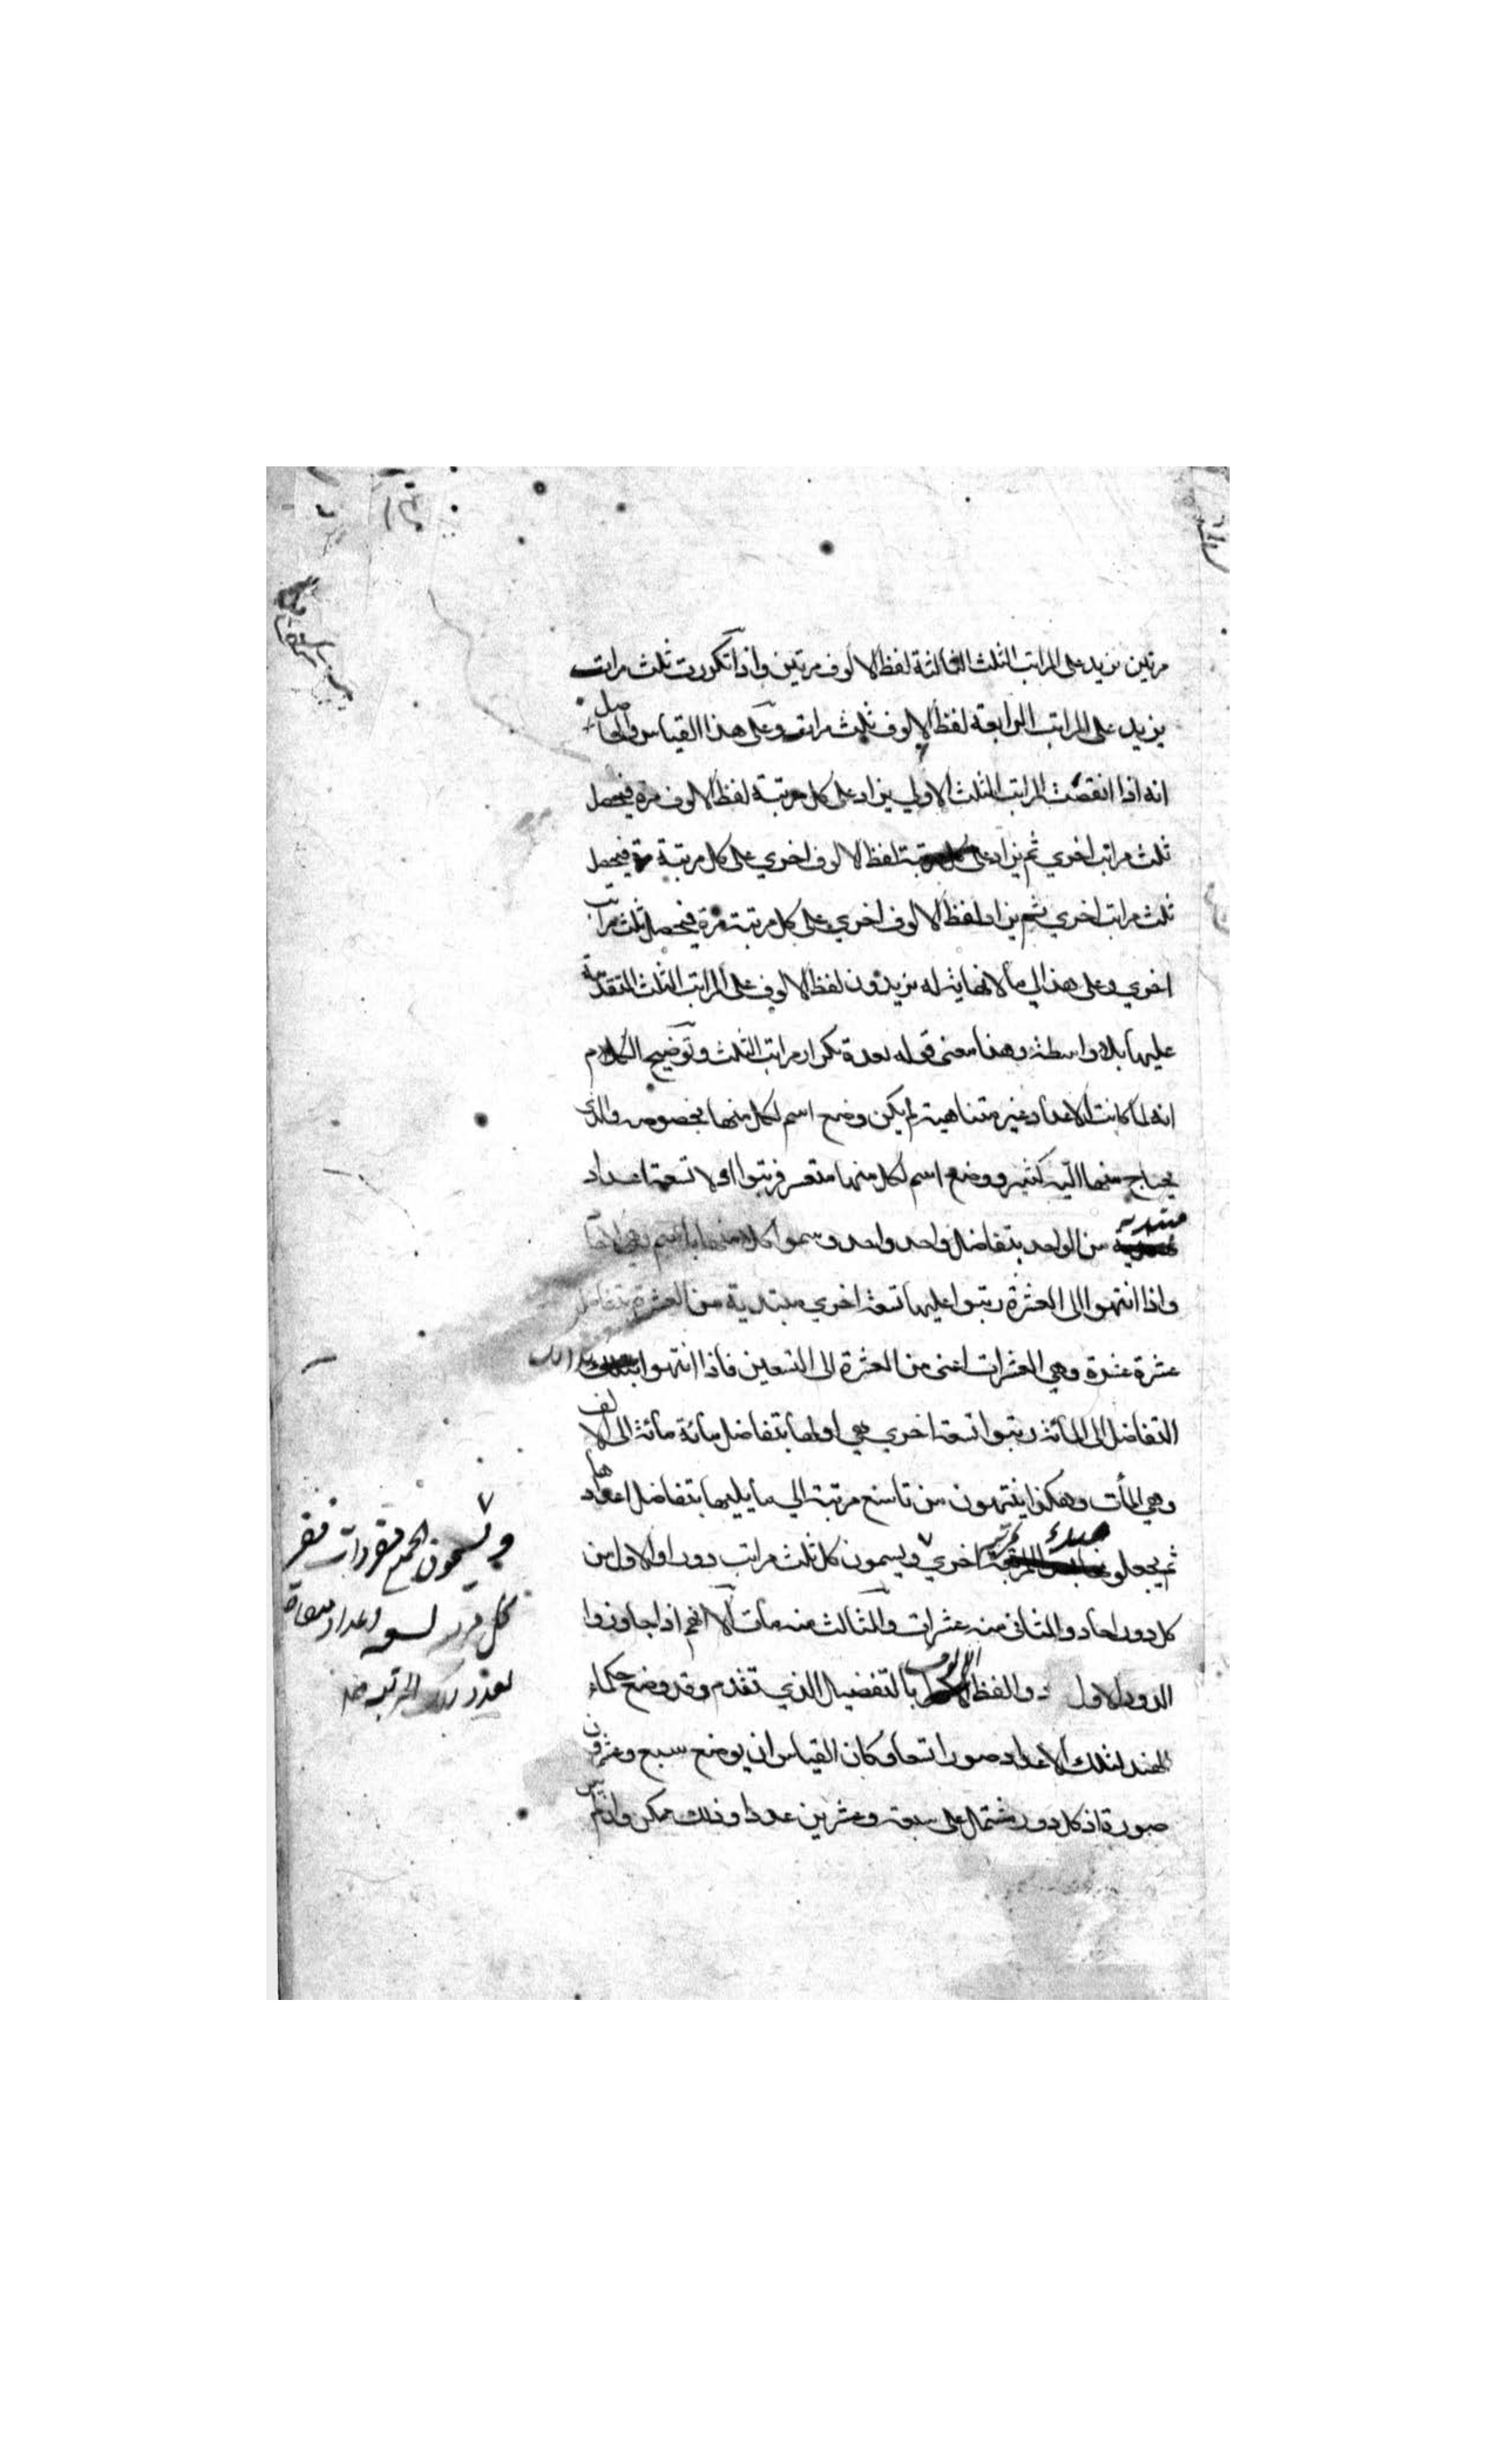 مرتين نزيد على المراتب الثلث الثالثة لفظ الالوف مرتين واذا تكررت ثلث مرات
يزيد على المراتب الرابعة لفظ الالوف ثلث مرات وعلى هذا القياس والحاصل
انه اذا انقضت المراتب الثلث الاولي يزاد على كل مرتبة لفظ الالوف مرة فيحصل
ثلث مراتب اخري ثم يزاد على لفظ الالوف اخري على كل مرتبة مرة فيحصل
ثلث مراتب اخري ثم يزاد لفظ الالوف اخري على كل مرتبة مرة فيحصل ثلث مراتب
اخري وعلى هذا الي ما لا نهاية له يزيدون لفظ الالوف على المراتب الثلث المتقدمة
عليها بلا واسطة وهذا معنى قوله بعدة تكرار مراتب الثلث وتوضيح الكلام
انه لما كانت الاعداد غير متناهية لم يكن وضع اسم لكل منها بخصوصه والذي
يحتاج منها اليه كثير ووضع اسم لكل منها متعسر فرتبوا اولا تسعة اعداد
مبتدية من الواحد بتفاضل واحد واحد وسموا كلا منها باسم وهي الاحاد
واذا انتهوا الى العشرة رتبوا عليها تسعة اخري مبتدية من العشرة بتفاضل
عشرة عشرة وهي العشرات اعنى من العشرة الى التسعين فاذا انتهوا بذلك
التفاضل الى المائة رتبوا تسعة اخري هي اولها بتفاضل مائة مائة الى الالف
وهي المأت وهكذا ينتهون من تاسع مرتبة الي ما يليها بتفاضل اعدادها
ثم يجعلو مبدء مرتبة اخري ويسمون كل ثلث مراتب دورا والاول من
كل دور احاد والثانى منه عشرات والثالث منه مأت الا انهم اذا جاوزوا
الدور الاول زدوا لفظ الالوف بالتفضيل الذي تقدم وقد وضع حكماء
الهند لتلك الاعداد صورا تسعا وكان القياس ان يوضع سبع وعشرون
صورة اذ كل دور مشتمل على سبعة وعشرين عددا وذلك ممكن وان
ويسمون الجميع مفردات
كل اعداد مسماة
بعدد تلك المرتبة